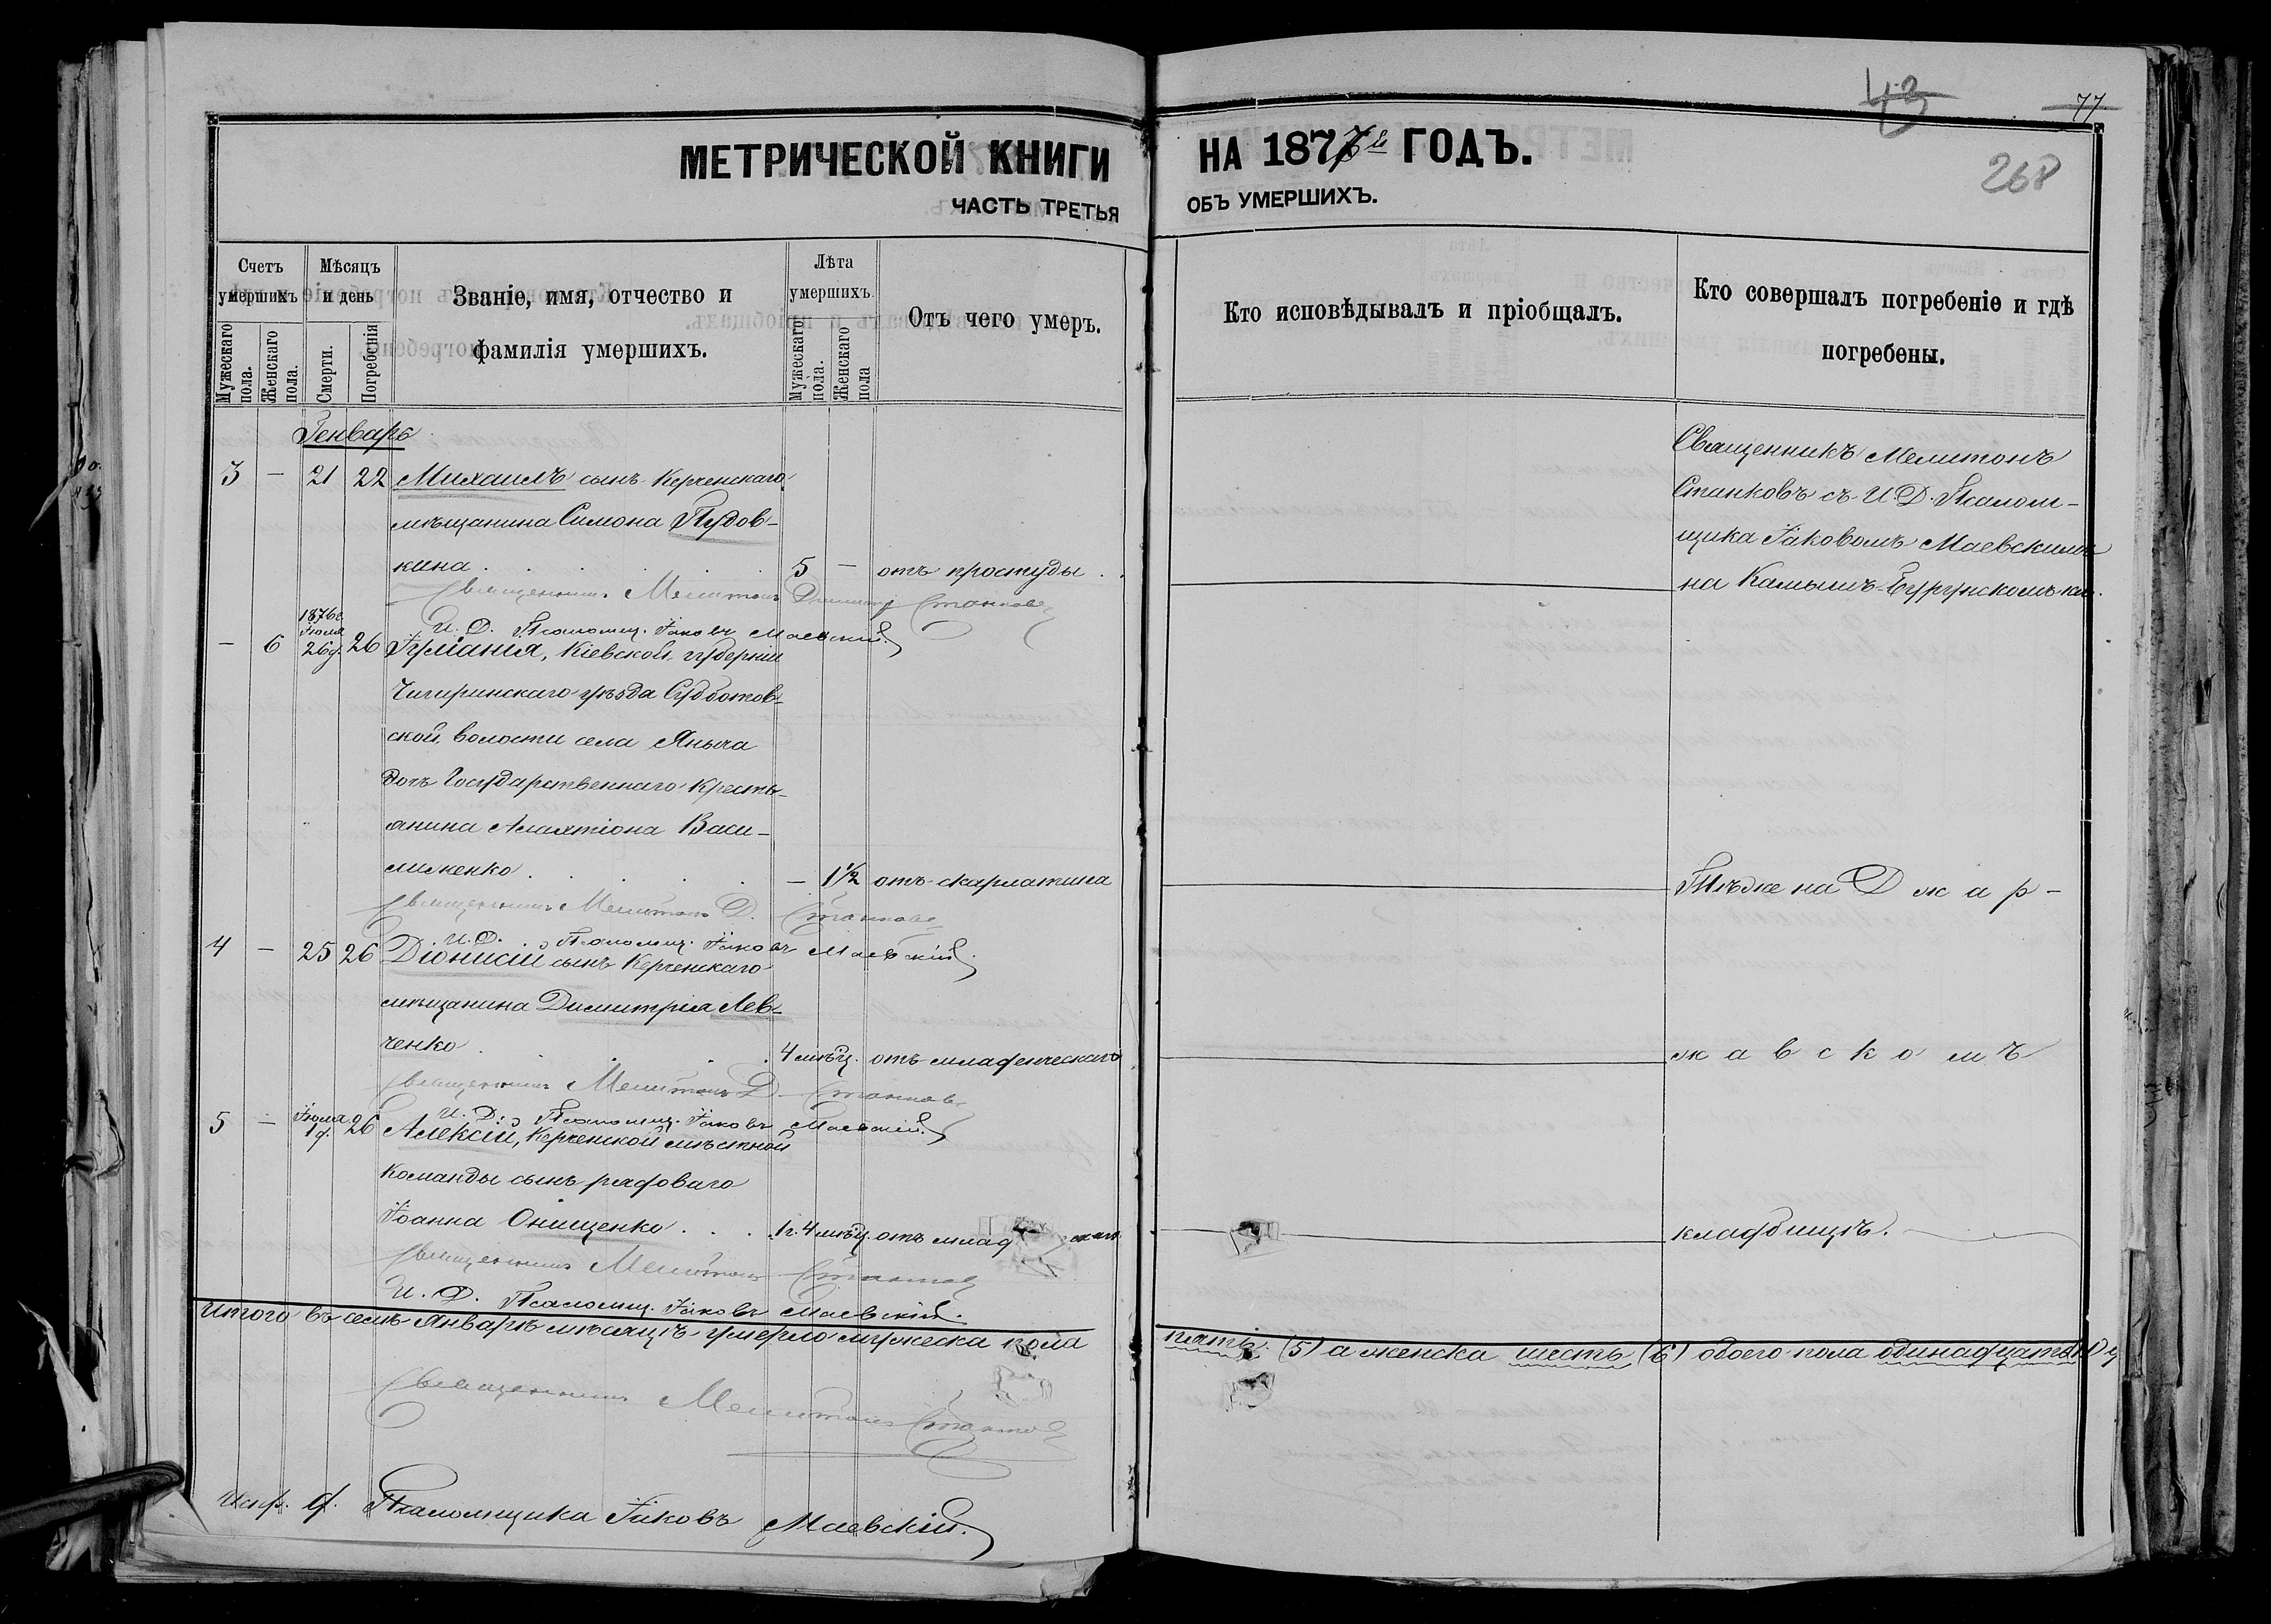 43
77
268
МЕТРИЧЕСКОЙ КНИГИ НА 1877й ГОДЪ.
ЧАСТЬ ТРЕТЬЯ ОБЪ УМЕРШИХЪ.
Счетъ умершихъ
Мужескаго пола.
Женскаго пола.
Мѣсяцъ и день
Смерти.
Погребенія
Званіе, имя, отчество и
фамилія умершихъ.
Лѣта умершихъ.
Мужескаго пола.
Женскаго пола
Отъ чего умеръ.
Кто исповѣдывалъ и пріобщалъ.
Кто совершалъ погребеніе и гдѣ
погребены.
Генварь
3 — 21 22 Михаилъ сынъ Керченскаго
мѣщанина Симона Пудов-
кина . . . . 5 — отъ простуды .
Священникъ Мелитонъ Станковъ
И. Д. Псаломщ. Іаковъ Маевскій.
Священникъ Мелитонъ
Станковъ съ И. Д. Псалом-
щика Іаковомъ Маевскимъ
на Камышъ-Бурунскомъ кл.
— 6 1876г. 26 26 Іуліанія, Кіевской губерніи
Чигиринскаго уѣзда Субботов-
ской волости села Яныча
дочь Государственнаго Кресть-
янина Васи-
лиженко . . . . — 1½ отъ скарлатина
Тѣже на Джар-
Священникъ Мелитонъ Д. Станковъ
И. Д. Псаломщ. Іаковъ Маевскій.
4 — 25 26 Діонисій сынъ Керченскаго
мѣщанина Димитрія Лев-
ченко . . . . 4 мѣц. отъ младенческаго
жавскомъ
Священникъ Мелитонъ Д. Станковъ
И. Д. Псаломщ. Іаковъ Маевскій.
5 — 26 Алексій, Керченской мѣстной
команды сынъ рядоваго
Іоанна Онищенко . . . 1г. 4 мѣц. отъ млад
кладбищѣ.
Священникъ Мелитонъ Станковъ
И. Д. Псаломщ. Іаковъ Маевскій.
Итого въ семъ Январѣ мѣсяцѣ умерло мужеска пола пять (5) а женска шесть (6) обоего пола одинадцать
Священникъ Мелитонъ Станковъ
Испр. д. Псаломщика Іаковъ Маевскій.